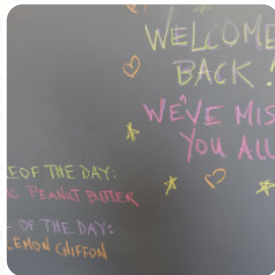 WELCOME
BACK!
WE'VE MIS
YOU ALL
E OF THE DAY:
C PEANUT BUTTER
OF THE DAY:
LEMON CHIFFON